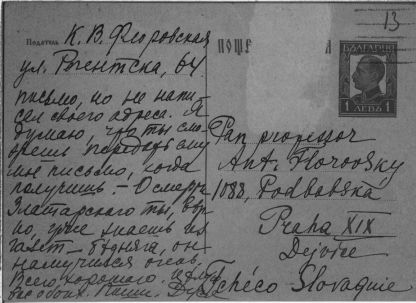 Податель К. В. Флоровская
ул. Регентска, 64
ПОЩЕ
БЪЛГАРИЯ
1 ЛЕВЪ 1
13
письмо, но не напи-
сал своего адреса. Я
думаю, что ты смо-
жешь передать ему
мое письмо, когда
получишь. – О смерти
Златарского ты, вер-
но, уже знаешь из
газет – бедняга, он
намучился очень.
Всего хорошего.
Pan professor
Ant. Florovsky
1088, Podbabska
Praha XIX
Dejvice
Tchéco Slovaquie